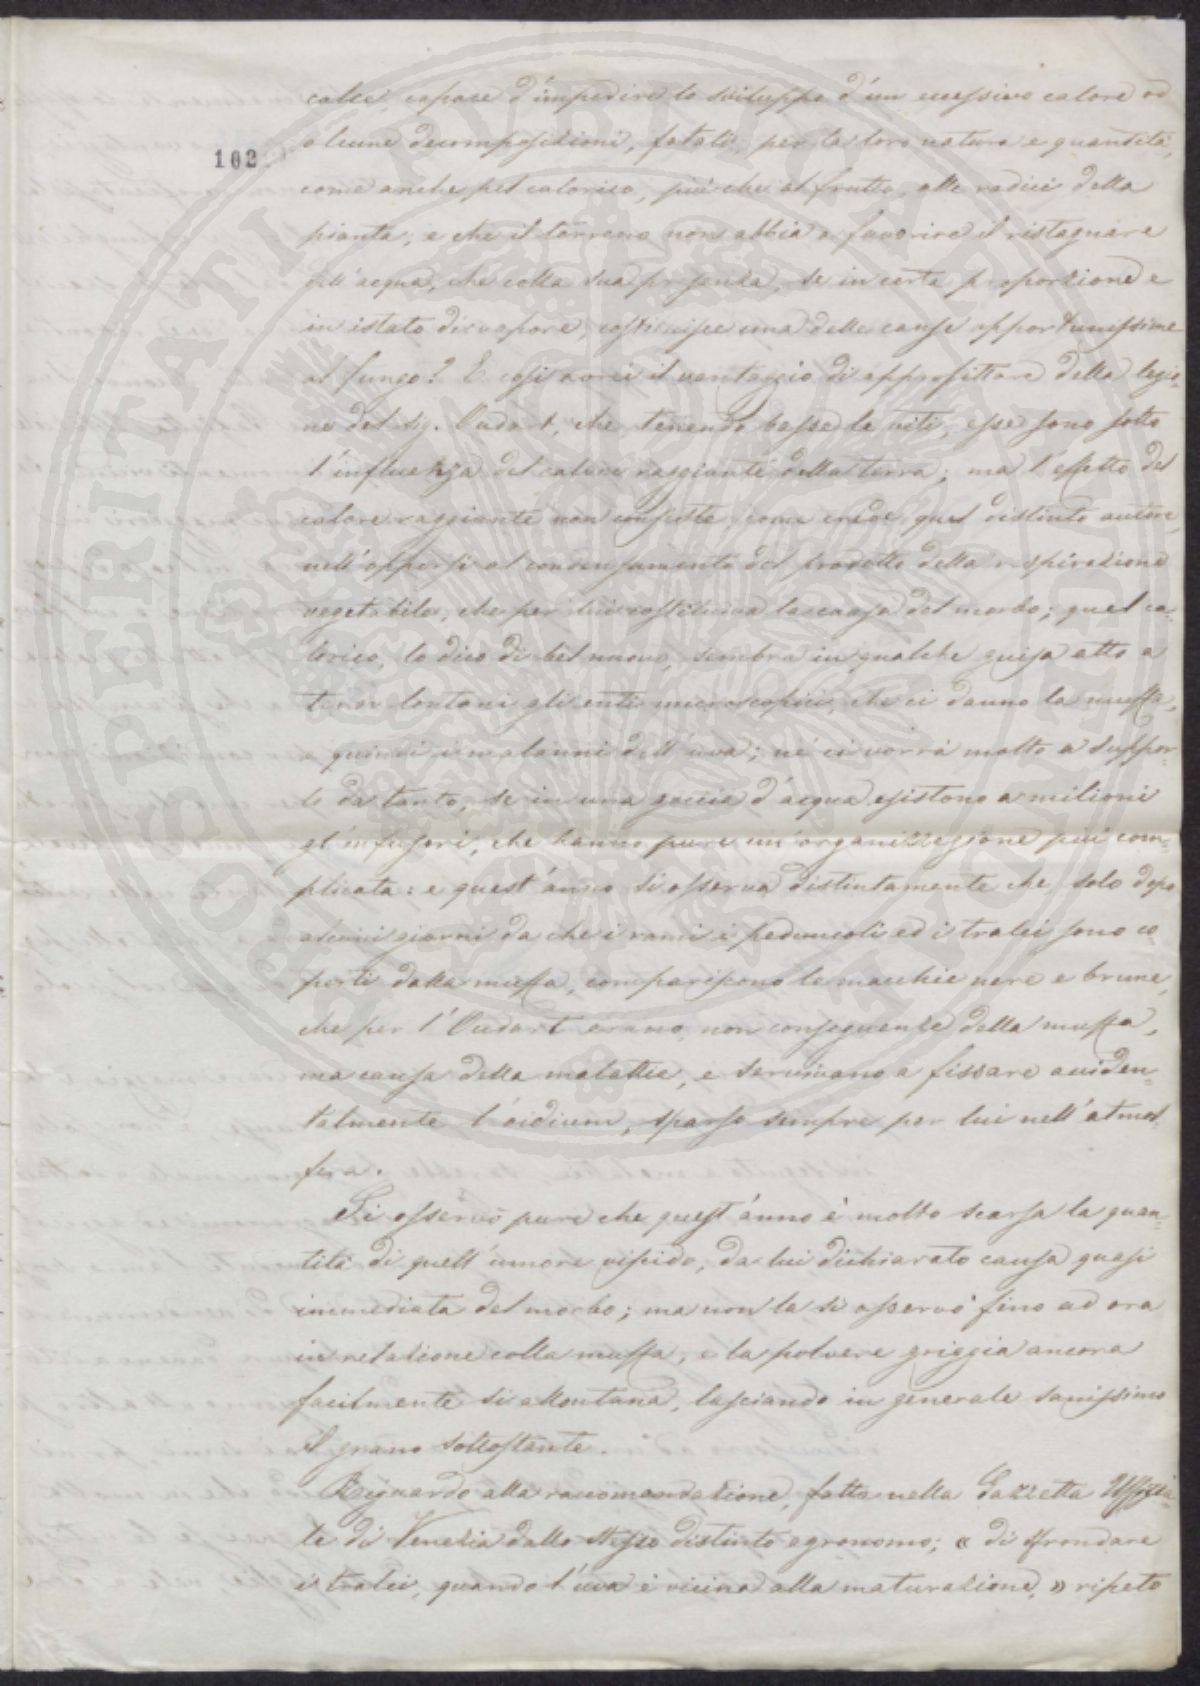 calce, capace d'impedire lo sviluppo d'un eccessivo calore od
alcune decomposizioni, fatali, per la loro natura e quantità,
102
come anche pel calorico, più che al frutto, alle radici della
pianta; e che il terreno non abbia a favorire il ristagnare
dell'acqua, che colla sua presenza, se in certa proporzione e
in istato di vapore, costituisce una delle cause opportunissime
al fungo? E così avrei il vantaggio di approfittare della lezio-
ne del Sig. Oudart, che, tenendo basse le viti, esse sono sotto
l'influenza del calore raggiante della terra; ma l'effetto del
calore raggiante non consiste, come crede quel distinto autore,
nell'opporsi al condensamento del prodotto della respirazione
vegetabile, che per lui costituiva la causa del morbo; quel ca-
lorico, lo dico di bel nuovo, sembra in qualche guisa atto a
tener lontani gli enti microscopici, che ci danno la muffa,
e quindi i malanni dell'uva; nè ci vorrà molto a suppor-
lo da tanto, se in una goccia d'acqua esistono a milioni
gl'infusori, che hanno pure un'organizzazione più com-
plicata: e quest'anno si osserva distintamente che solo dopo
alcuni giorni da che i rami i peduncoli ed i tralci sono co-
perti dalla muffa, compariscono le macchie nere e brune,
che per l'Oudart erano, non conseguenze della muffa,
ma causa della malattia, e servivano a fissare acciden-
talmente l'oidium, sparso sempre per lui nell'atmos-
fera.
Si osservò pure che quest'anno è molto scarsa la quan-
tità di quell'umore viscido, da lui dichiarato causa quasi
immediata del morbo; ma non la si osservò fino ad ora
in relazione colla muffa, e la polvere griggia ancora
facilmente si allontana, lasciando in generale sanissimo
il grano sottostante.
Riguardo alla raccomandazione, fatta nella Gazzetta Uffizia-
le di Venezia dallo stesso distinto agronomo; « di sfrondare
i tralci, quando l'uva è vicina alla maturazione, » ripeto
PROSPERITATI PVBLICAE